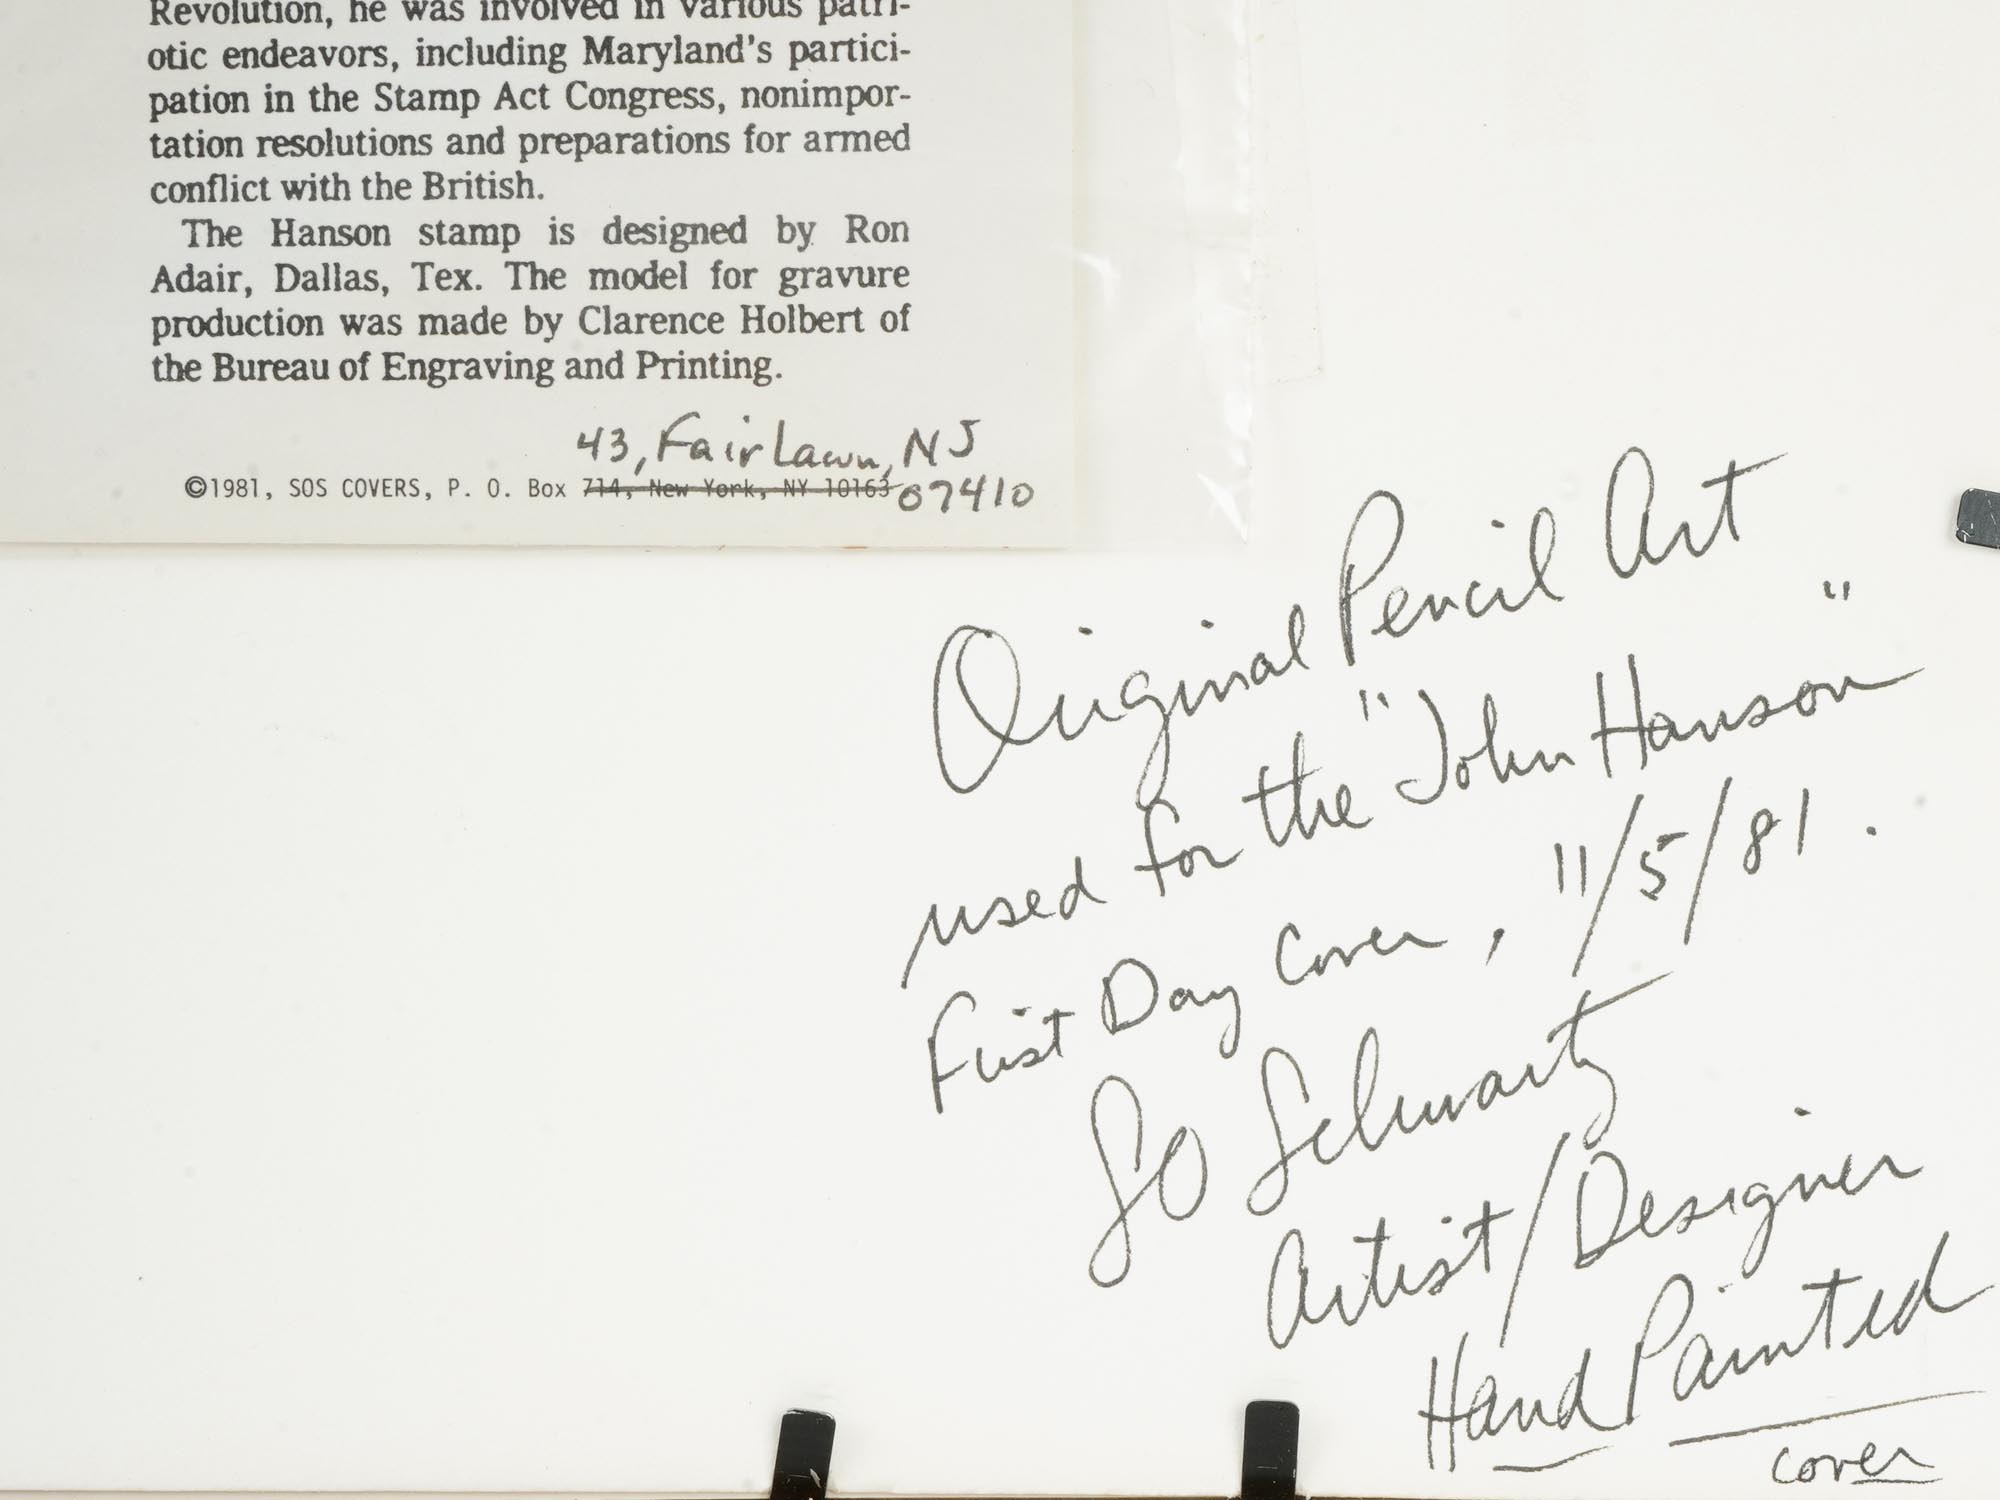 Revolution, he was involved in various patri-
otic endeavors, including Maryland's partici-
pation in the Stamp Act Congress, nonimpor-
tation resolutions and preparations for armed
conflict with the British.
The Hanson stamp is designed by Ron
Adair, Dallas, Tex. The model for gravure
production was made by Clarence Holbert of
the Bureau of Engraving and Printing.
43, Fair Lawn, NJ
©1981, SOS COVERS, P. O. Box 714, New York, NY 10163 07410
Original Pencil Art
used for the "John Hanson"
First Day Cover, 11/5/81.
SO Schwartz
Artist/Designer
Hand Painted
cover